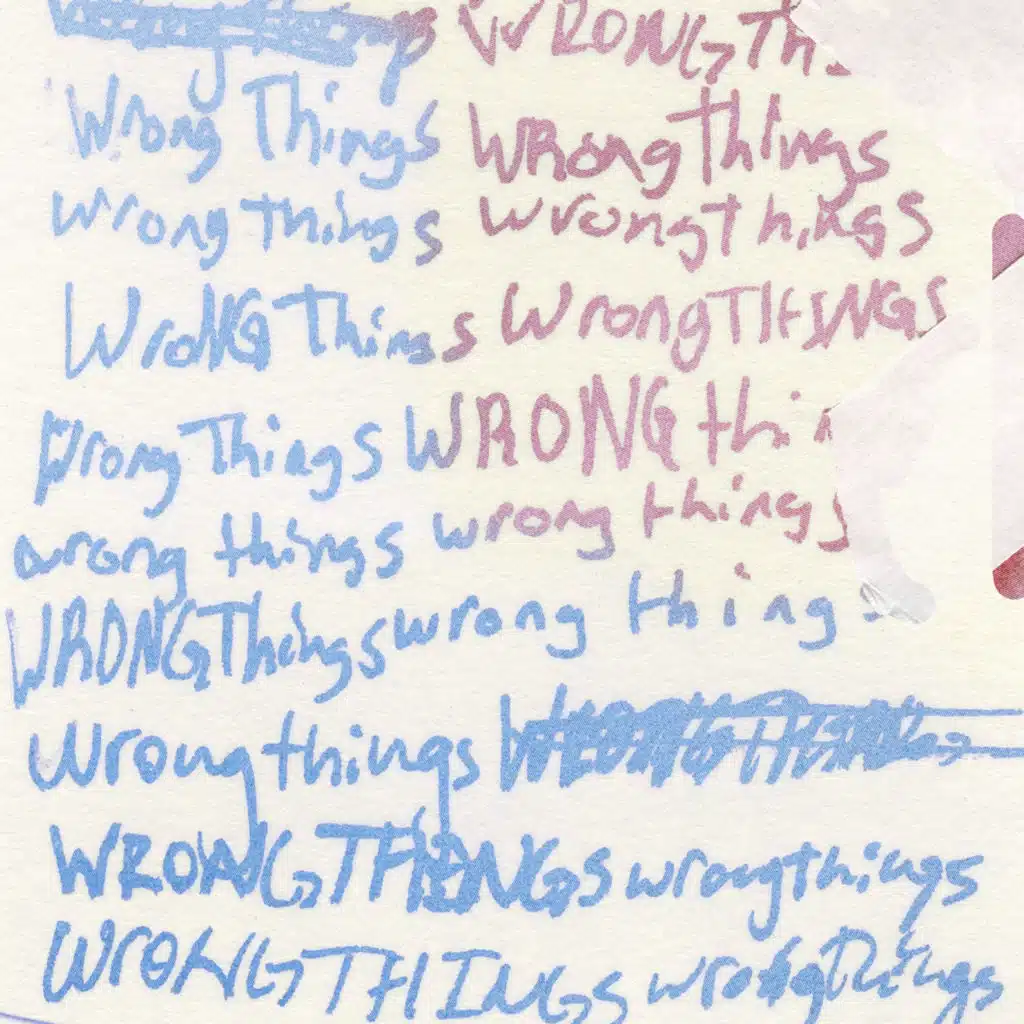 WRONG Th
Wrong Things WRong things
wrong things wrong things
WroNG Things Wrong THINGS
Wrong Things WRONG thi
wrong things wrong things
WRONG Things wrong things
wrong things
WRONG THINGS wrong things
WRONG THINGS wrong things